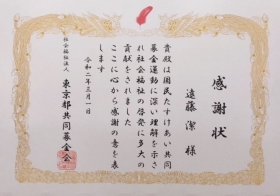 感謝状
遠藤 潔 様
貴殿は国民たすけあい共同
募金運動に深い理解を示さ
れ社会福祉の啓発に多大の
貢献をされました
ここに心から感謝の意を表
します
令和二年三月一日
社会福祉法人
東京都共同募金会